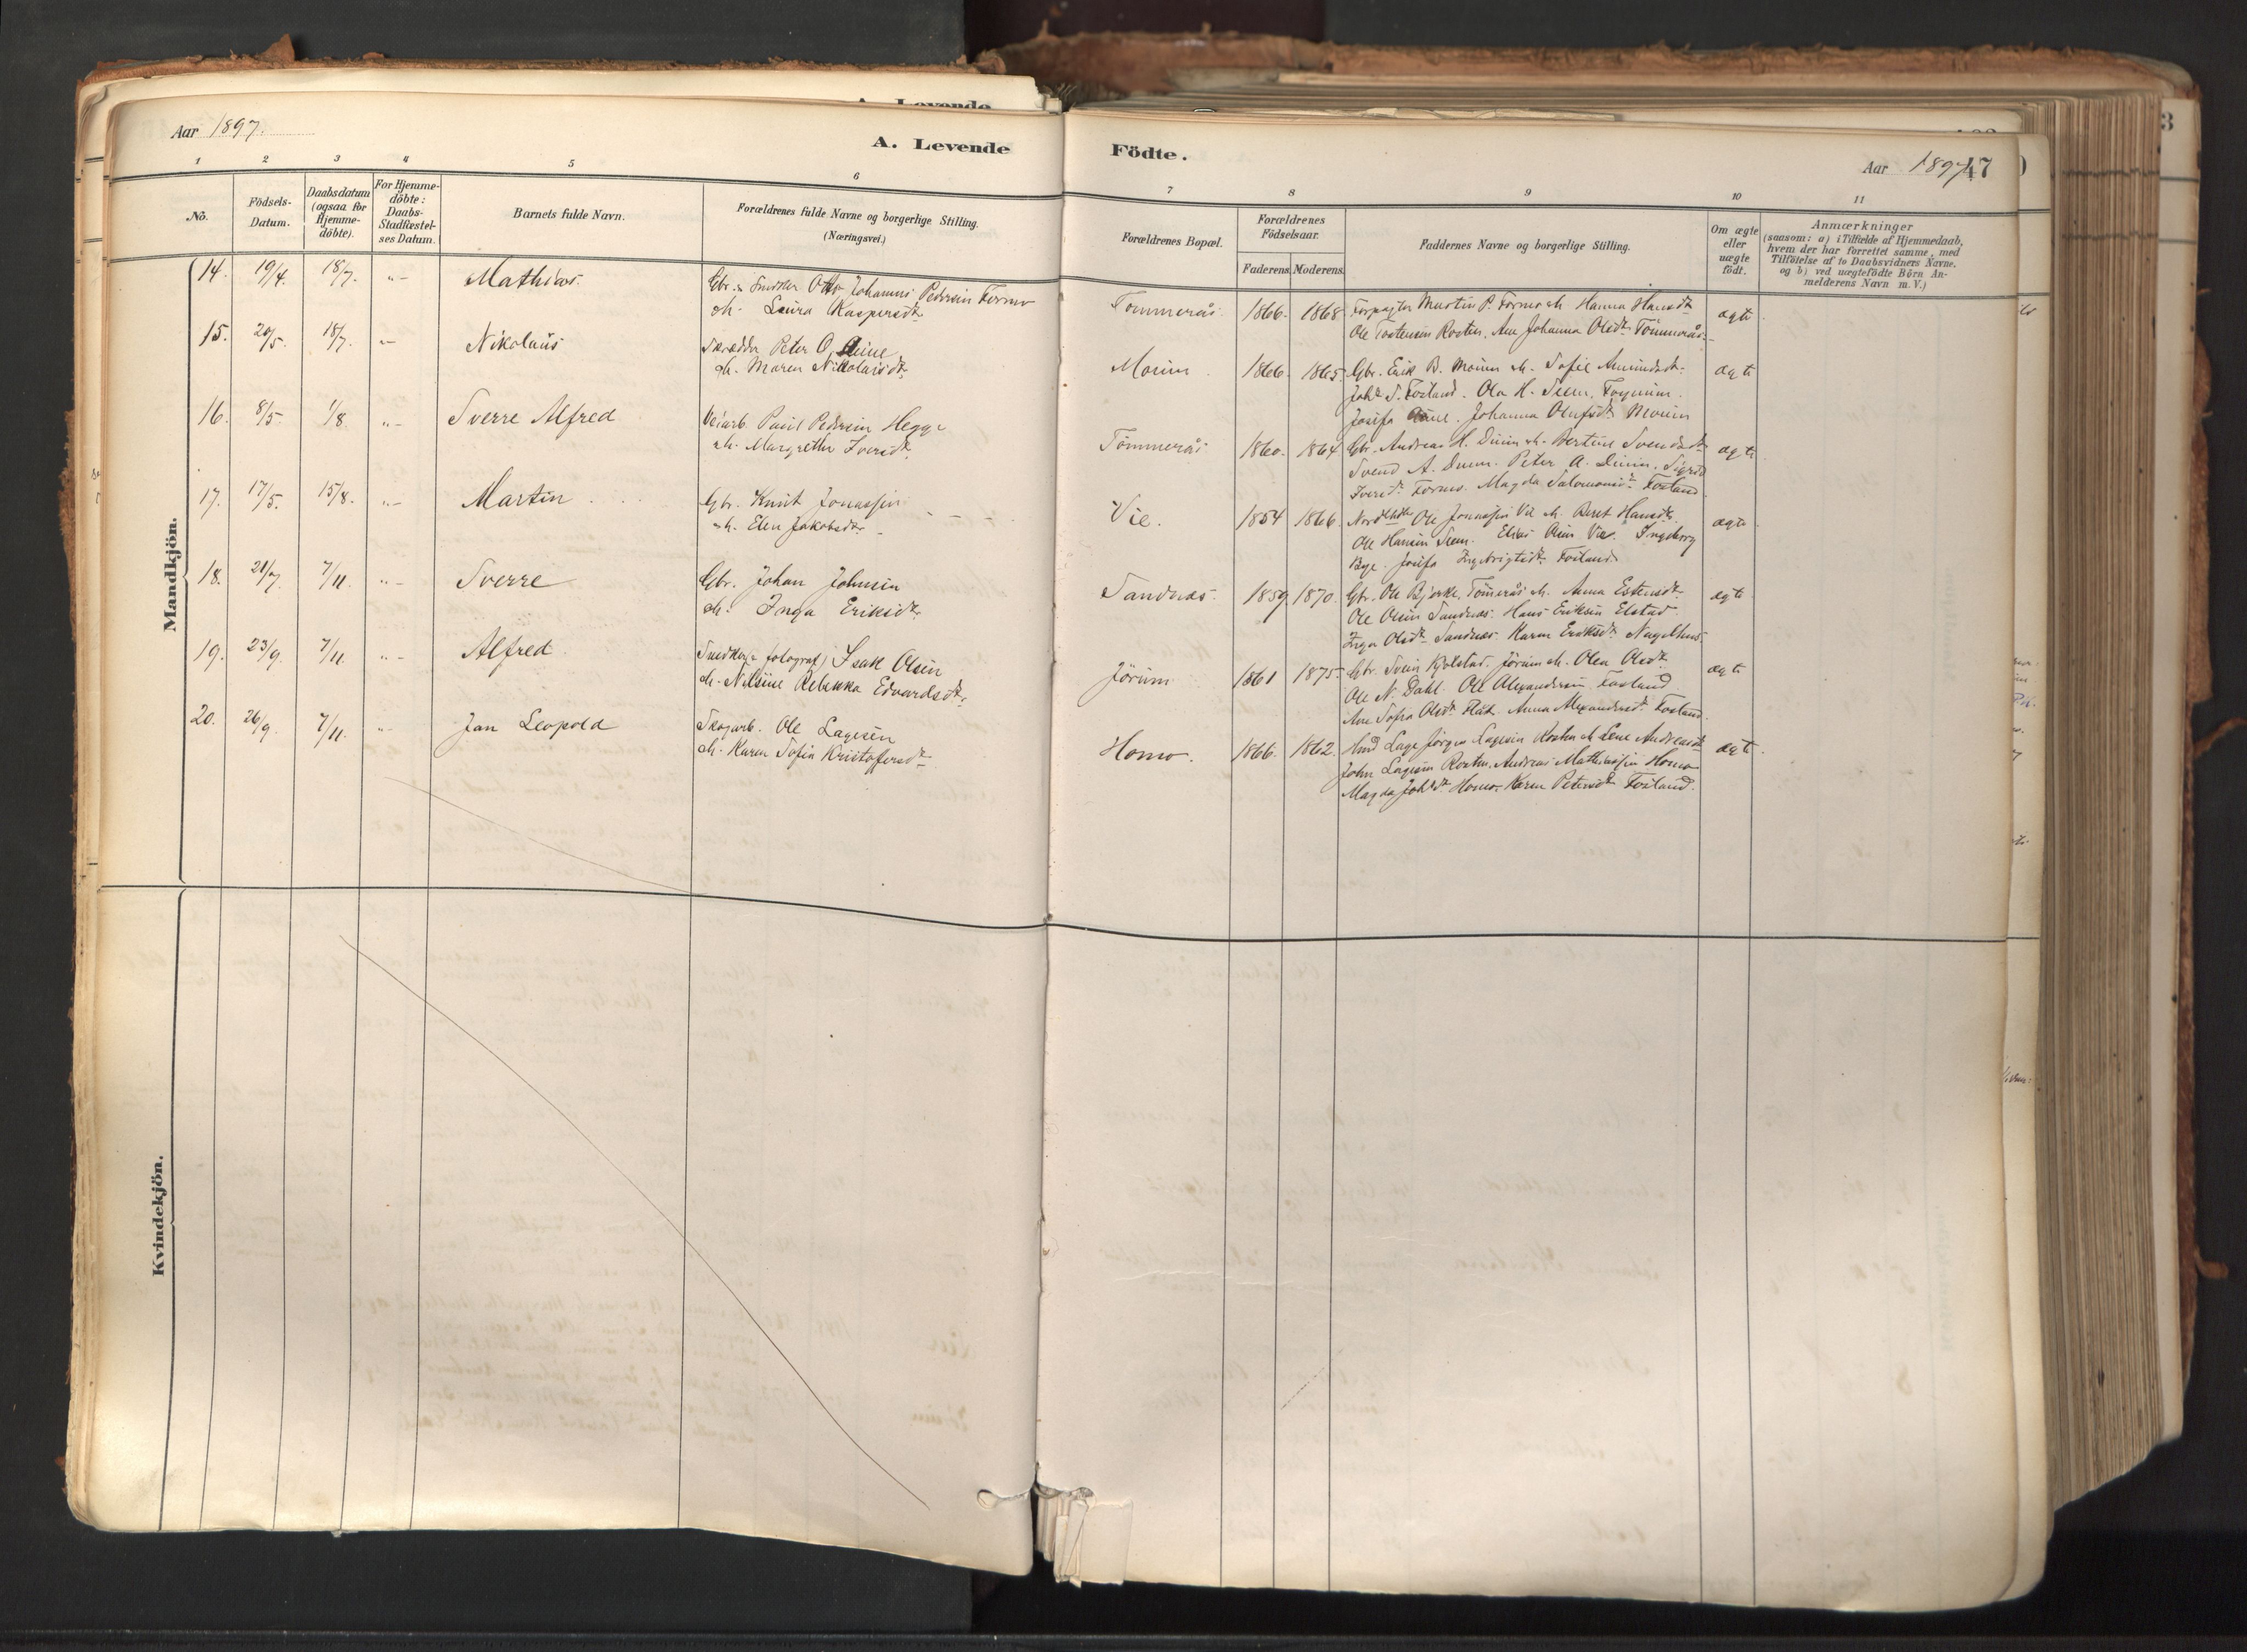 Aar 1897.
A. Levende
Födte.
Aar 1897.
47
1 2 3 4 5 6
7 8 9 10 11
No.
Födsels-Datum.
Daabsdatum (ogsaa for Hjemme-döbte).
For Hjemme-döbte: Daabs-Stadfæstel-ses Datum.
Barnets fulde Navn.
Forældrenes fulde Navne og borgerlige Stilling.
(Næringsvei.)
Forældrenes Bopæl.
Forældrenes Födselsaar.
Faderens. Moderens.
Faddernes Navne og borgerlige Stilling.
Om ægte eller uægte födt.
Anmærkninger
(saasom: a) i Tilfælde af Hjemmedaab,
hvem der har forrettet samme, med
Tilföielse af to Daabsvidners Navne.
og b) ved uægtefödte Börn An-
melderens Navn m. V.)
Mandkjön.
14. 19/4. 18/7. "- Mathias.
Gbr. & Snedker Otto Johannes Pedersen Formo
m. Laura Kaspersdtr
Tömmerås. 1866. 1868.
Forpagter Martin P. Formo m. Hanna Hansdtr
Ole Tostensen Rosten. Ane Johanna Olsdtr Tömmerås.
ægte
15. 20/5. 18/7. "- Nikolaus
Skrædder Peter O.
m. Maren Nikolaisdtr
1866. 1865.
Gbr. Erik B. m. Sofie Amundsdtr.
Johs S. Fosland. Ola H. Seem,
Josefa Johanna Olufsdtr
ægte
16. 8/5. 1/8. "- Sverre Alfred
Veiarb. Paul Pedersen Hegge
m. Margrethe Iversdtr
Tömmerås 1860. 1864
Gbr. Andreas H. m. Bertine Svendsdtr
Svend A. Peter A. Sigrid
Iversdtr Formo. Magda Salomonsdtr Fosland.
ægte
17. 17/5. 15/8. "- Martin
Gbr. Knut Jonassen
m. Elen Jakobsdtr.
Vie. 1854 1866.
Ole Jonassen Vie m. Beret Hansdtr.
Ole Hansen Seem. Elias Olsen Vie. Ingeborg
Bye. Josefa Fosland.
ægte
18. 21/7. 7/11. "- Sverre
Gbr. Johan Johnsen
m. Inga Eriksdtr
Sandnæs. 1859. 1870.
Gbr. Ole Bjerke, Tömerås m. Anna Estensdtr.
Ole Olsen Sandnæs. Hans Eriksen Elstad
Inga Olsdtr Sandnæs. Karen Eriksdtr Nagelhus
ægte
19. 23/9. 7/11. "- Alfred
Snedker (& fotograf) Isak Olsen
m. Nilsine Rebekka Edvardsdtr.
Jörum 1861 1875.
Gbr. Svein Kjölstad. Jörum m. Olea Olsdtr
Ole N. Dahl. Ole Alexandersen Fosland
Ane Sofia Olsdtr Flåt. Anna Alexandersdtr Fosland.
ægte
20. 26/9. 7/11. "- Jan Leopold
Skogarb. Ole Lagesen
m. Karen Sofia Kristofersdtr
Homo. 1866. 1862.
Lage Jörgen Lagesen Rosten m. Lene Andreasdtr
John Lagesen Rosten. Andreas Mathiassen Homo
Magda Johsdtr Homo. Karen Petersdtr Fosland.
ægte
Kvindekjön.